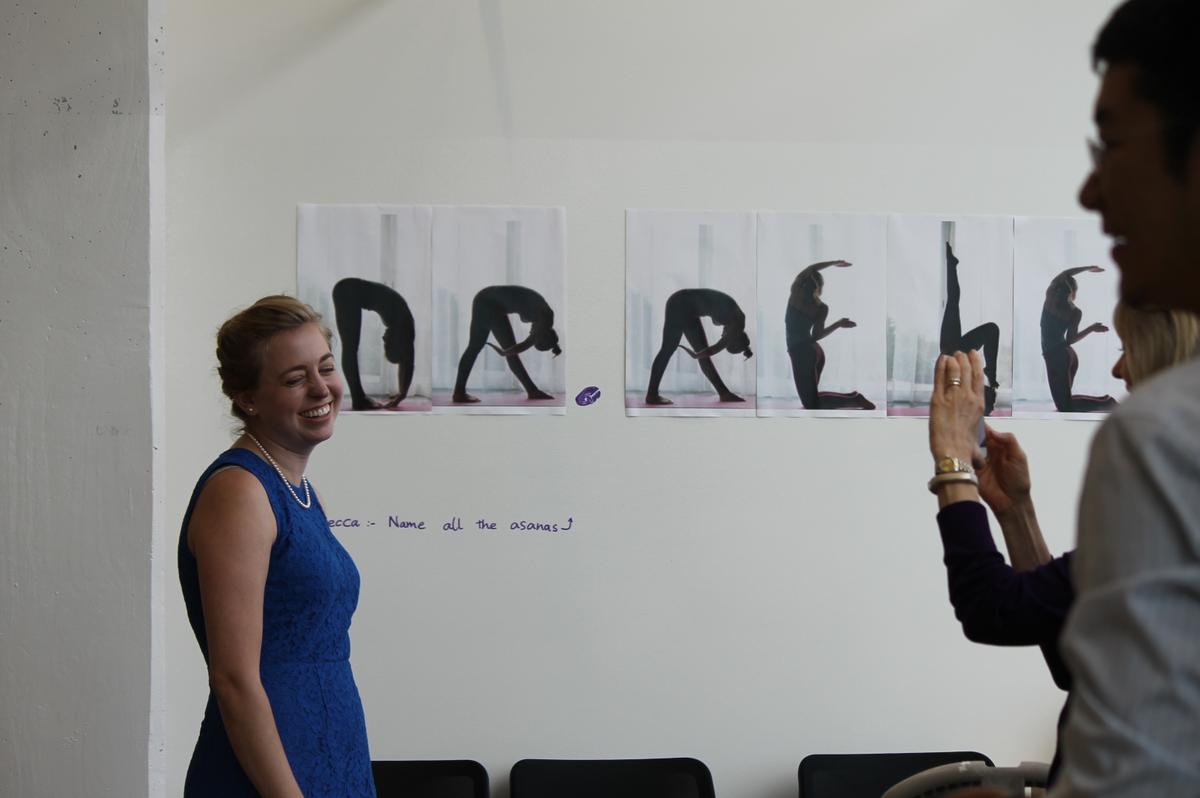 ecca :- Name all the asanas